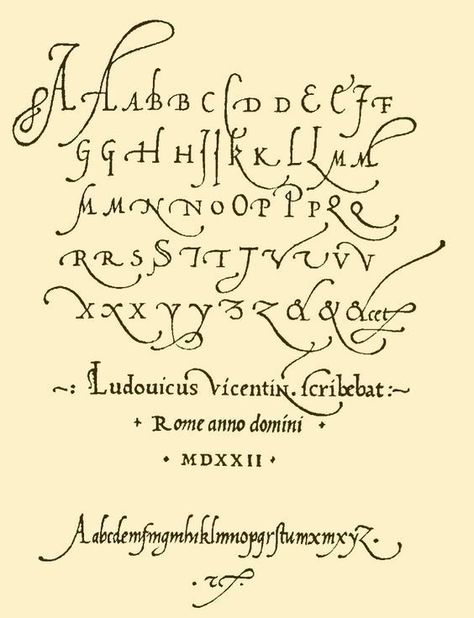 A A A B B C D D E E F F
G G H H I I K K L L M M
M M N N O O P P P Q Q
R R S S T T J V V V V
X X X Y Y Z Z & & &cet
~: Ludouicus Vicentin. ſcribebat :~
+ Rome anno domini +
· MDXXII ·
Aabcdemfmgmhıklmnopqrſtumxmxyz.